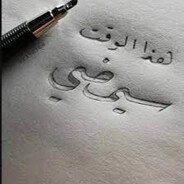 هذا الوقت
سيمضي